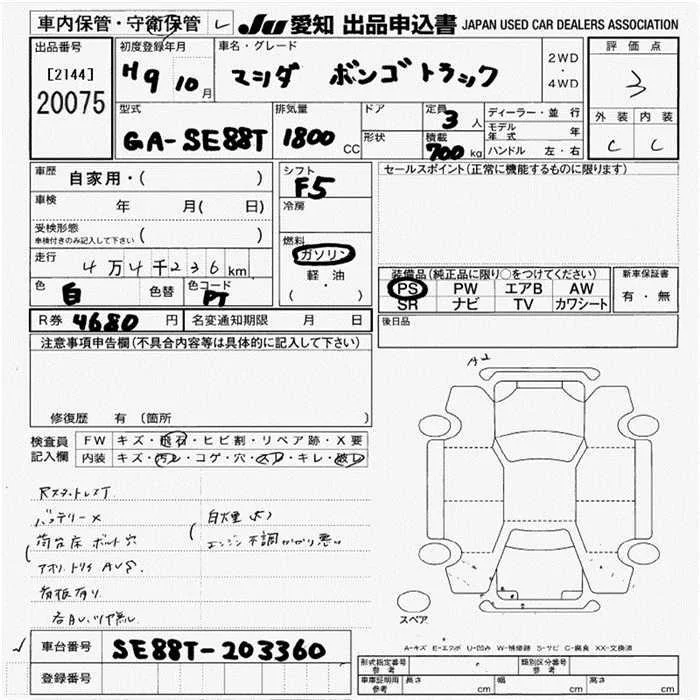 車内保管・守衛保管 レ JU 愛知 出品申込書 JAPAN USED CAR DEALERS ASSOCIATION
出品番号 初度登録年月 車名・グレード 2WD・4WD 評価点
[2144] H9 10月 マツダ ボンゴトラック 3
20075
型式 排気量 ドア 定員 3人 ディーラー・並行 外装 内装
GA-SE88T 1800cc 形状 積載 700kg モデル年式 年 C C
ハンドル 左・右
車歴 自家用・( ) シフト F5 セールスポイント(正常に機能するものに限ります)
車検 年 月( 日) 冷房
受検形態 ( )
車検付きのみ記入して下さい
燃料 ガソリン
軽油
( ・ )
走行 4万4千236km
色 白 色替 色コード PT
装備品(純正品に限り○をつけてください) 新車保証書
PS PW エアB AW 有・無
SR ナビ TV カワシート
R券 4680円 名変通知期限 月 日 後日品
注意事項申告欄(不具合内容等は具体的に記入して下さい)
修復歴 有 (箇所
A2
検査員 FW キズ・飛石・ヒビ割・リペア跡・X要
記入欄 内装 キズ・汚レ・コゲ・穴・スレ・キレ・破レ
バッテリー×
荷台床 ボルト穴
白煙
エンジン不調かかり悪い
アオリ
看板有り
スペア
A-キズ E-エクボ U-凹み W-補修跡 S-サビ C-腐食 XX-交換済
車台番号 SE88T-203360
登録番号
形式指定番号 参考 類別区分番号 参考
車庫証明用 参考 長さ cm 幅 cm 高さ cm